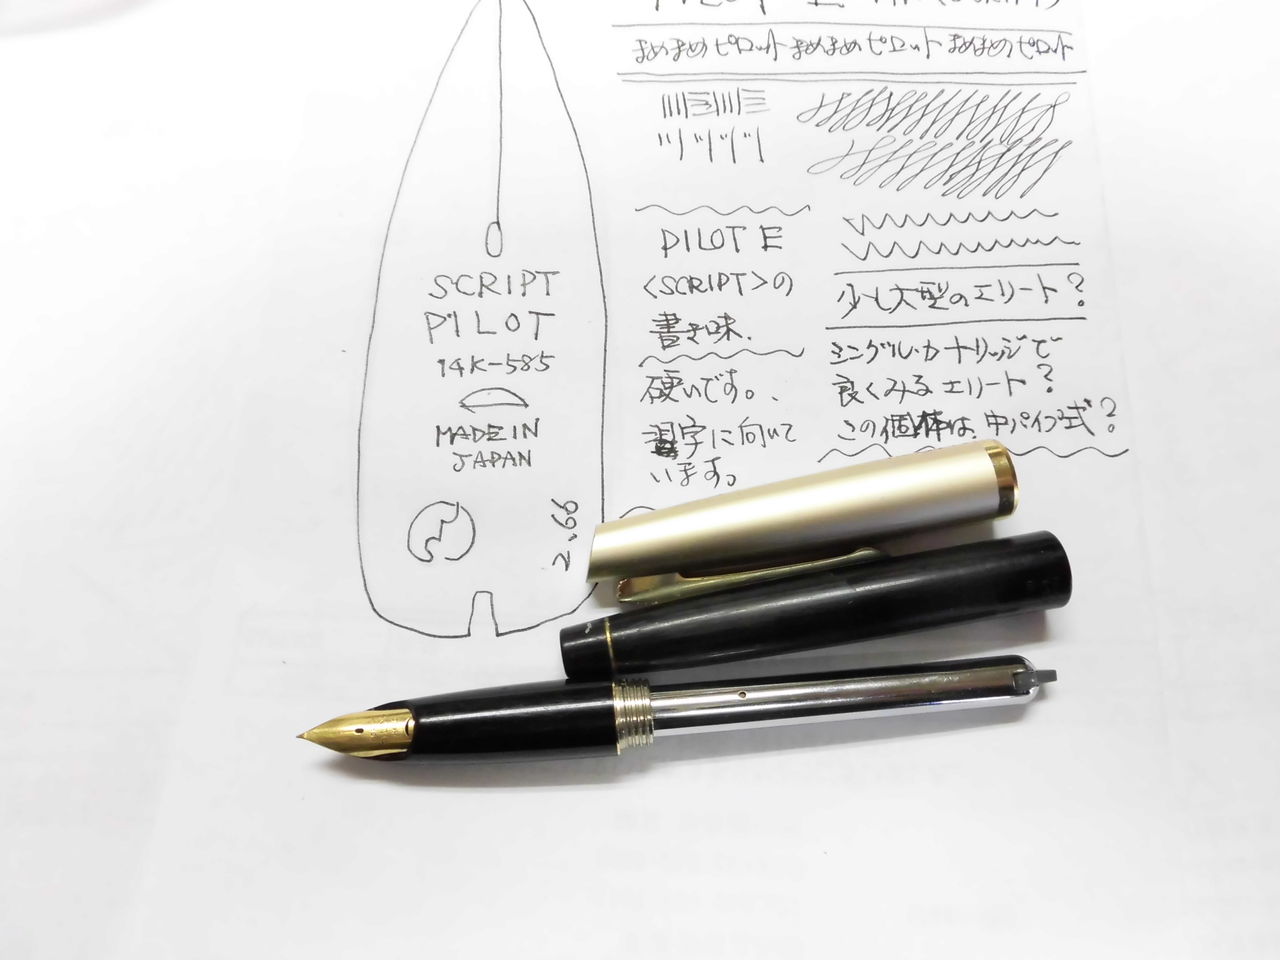 SCRIPT
PILOT
14K-585
MADE IN
JAPAN
2.66
まめまめピロット まめまめピロット まめまめピロット
PILOT E
<SCRIPT>の
書き味.
硬いです。
習字に向いて
います。
少し大型のエリート?
シングルカートリッジで
良くみるエリート?
この個体は、中パイプ式?